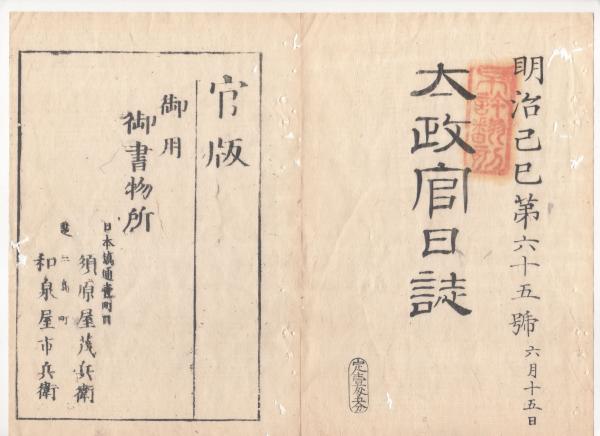 明治己巳第六十五號 六月十五日
太政官日誌
官版
御用
御書物所
日本橋通壹町目
須原屋茂兵衛
芝三島町
和泉屋市兵衛